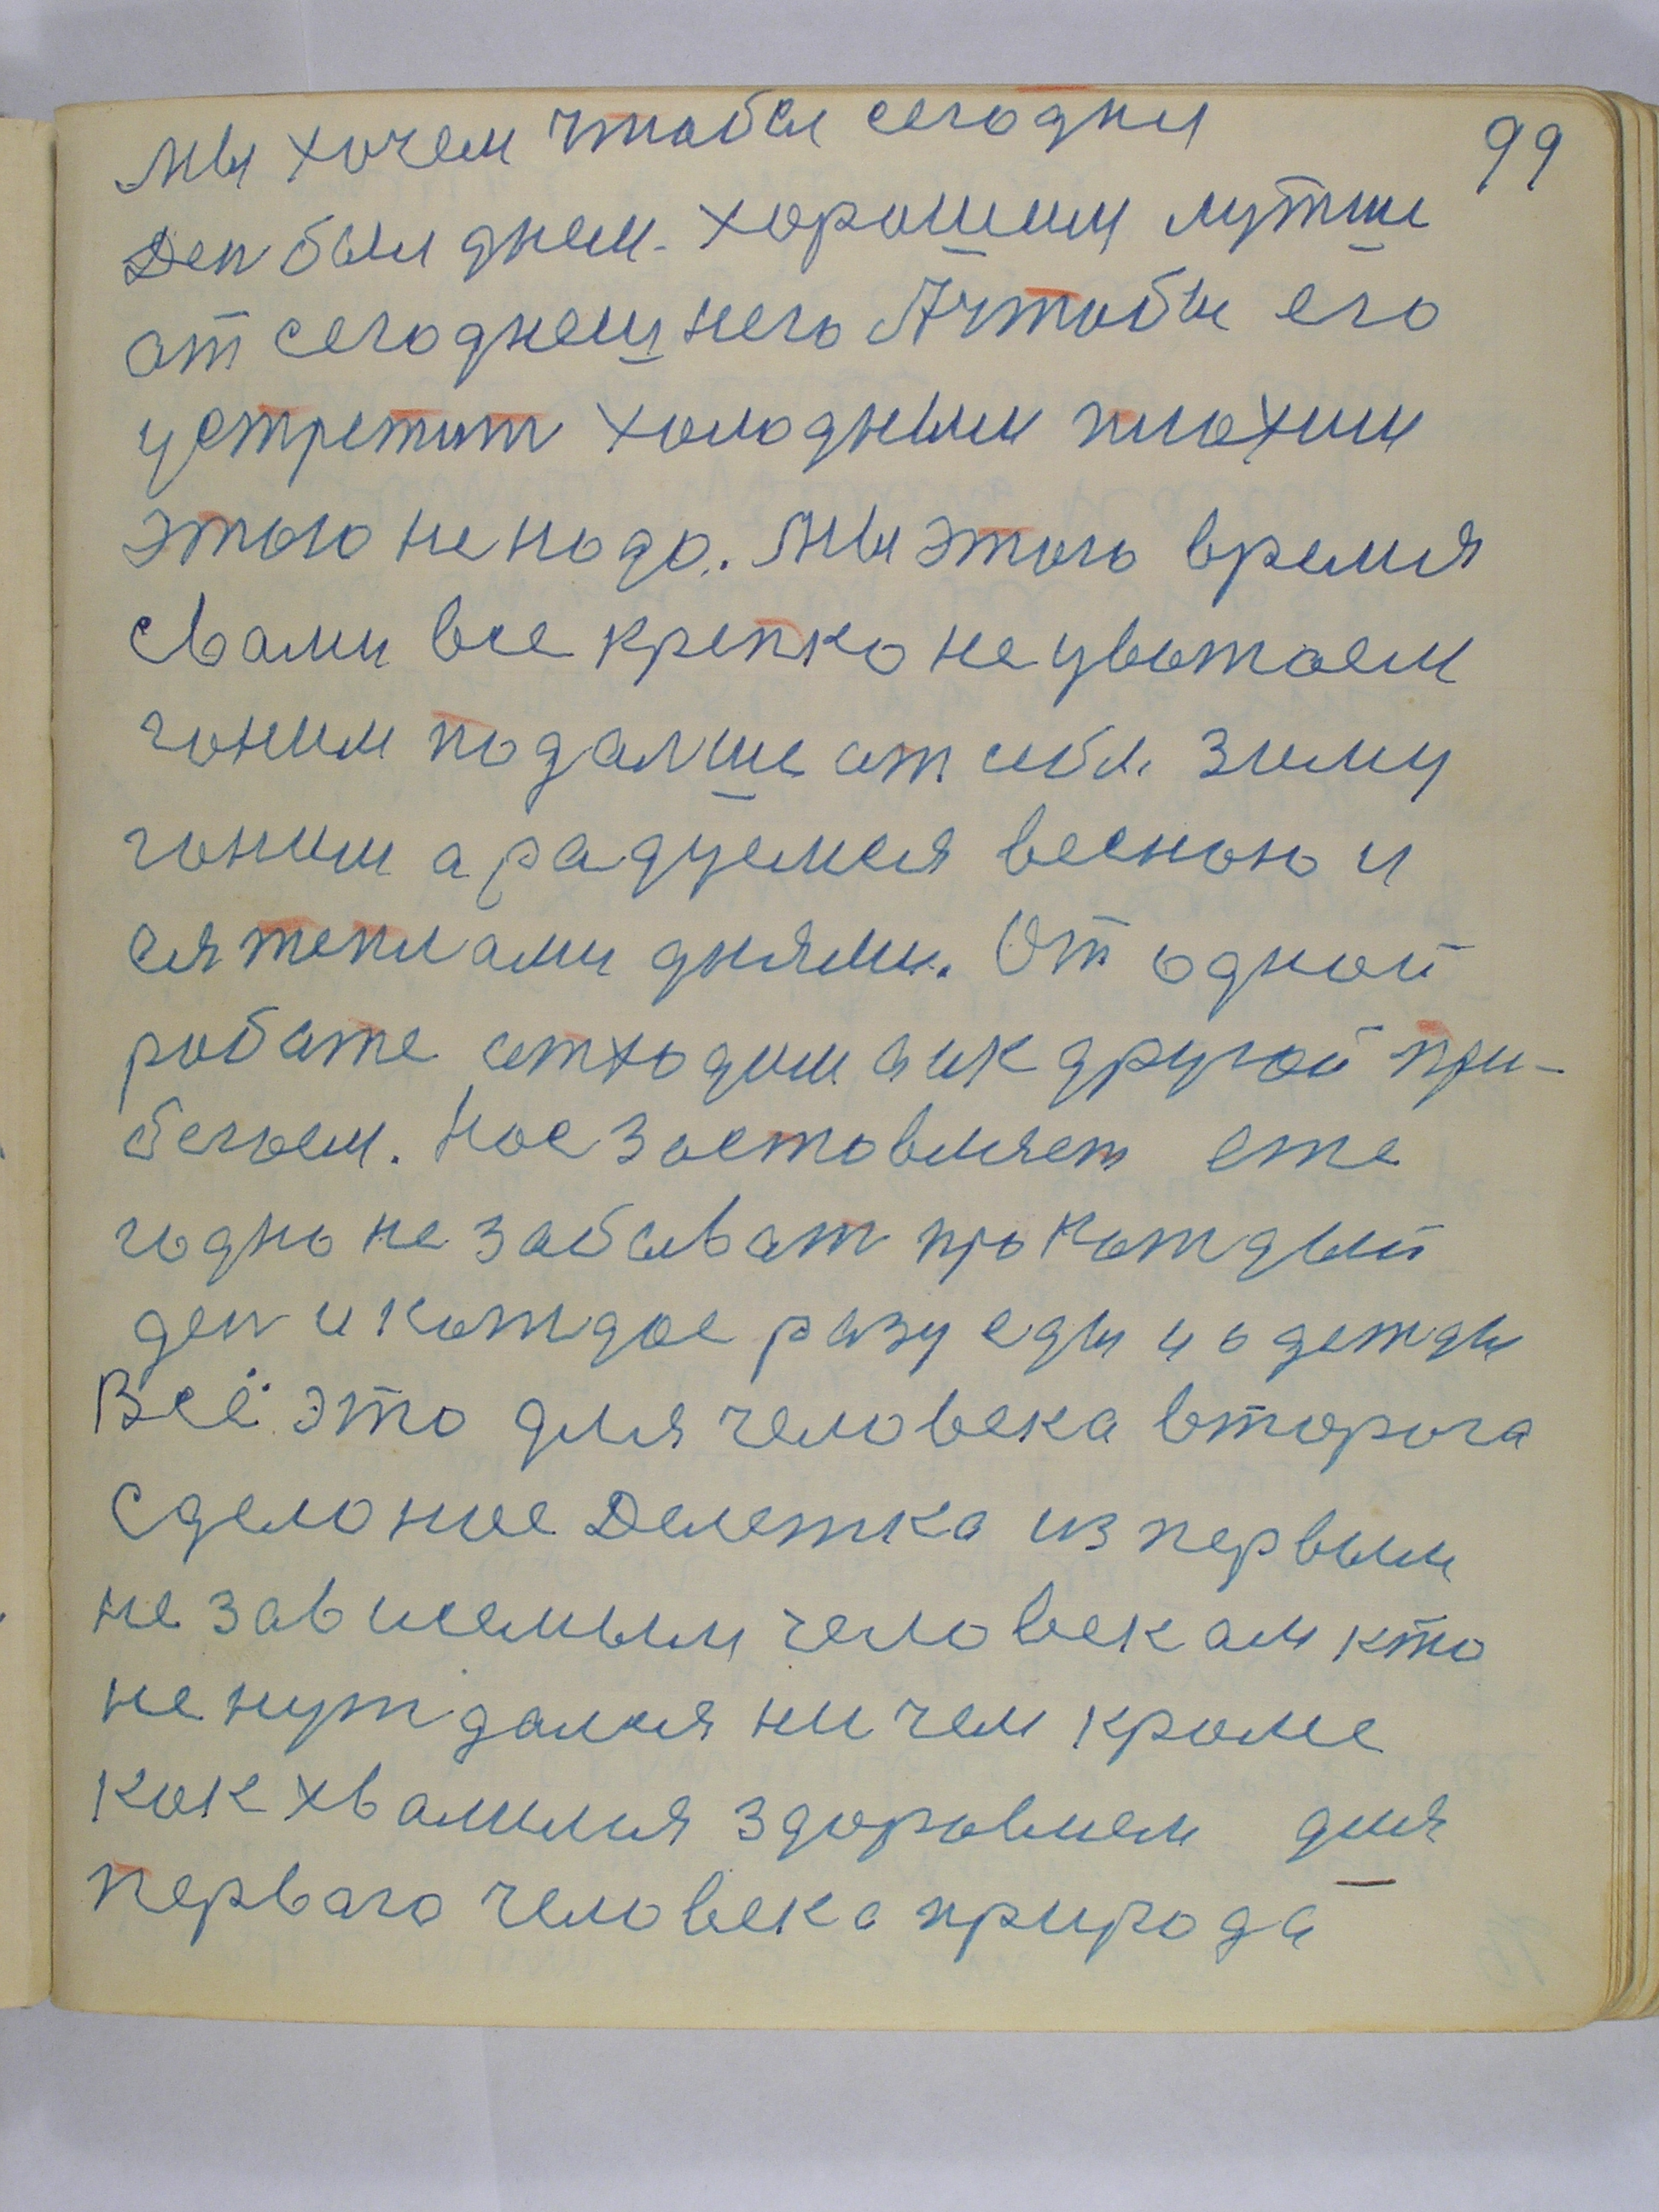 99
мы хочем чтобы сегодня
Ден был днем. хорошим лутши
от сегоднешнего А чтобы его
устретит холодным плохим
этого не надо. Мы этого время
с вами все крепко не уважаем
гоним подалше от себя зиму
гоним а радуемся весною и
ея теплами днями. От одной
работе отходим а к другой при-
бегаем. Нас заставляет еже
годно не забыват про каждый
ден и каждое разу еды и одежды
Всё это для человека второга
сделоное Делетка из первым
не зависемым человекам кто
не нуждался ни чем кроме
как хвалился здоровием для
перваго человека природа